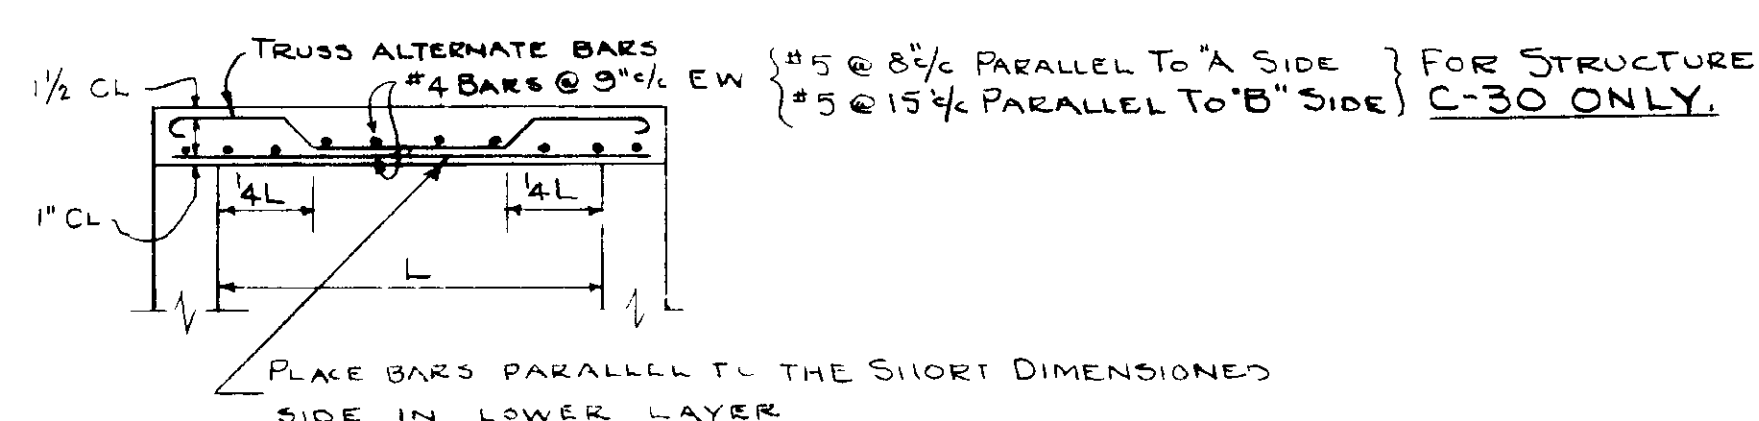 TRUSS ALTERNATE BARS
#4 BARS @ 9" c/c EW
{ #5 @ 8" c/c PARALLEL TO "A SIDE } FOR STRUCTURE
{ #5 @ 15" c/c PARALLEL TO "B" SIDE } C-30 ONLY.
1 1/2 CL
1/4 L
1/4 L
1" CL
L
PLACE BARS PARALLEL TO THE SHORT DIMENSIONED
SIDE IN LOWER LAYER